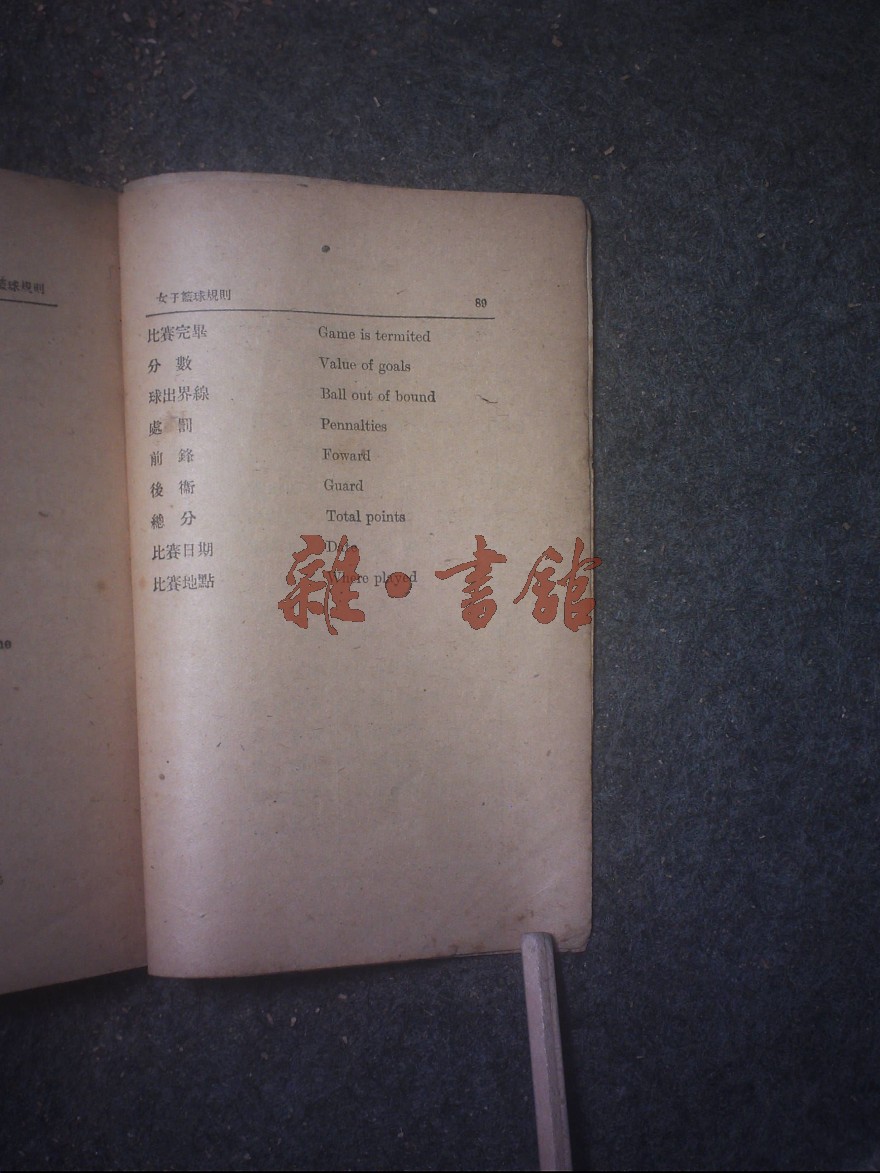 籃球規則
女子籃球規則 89
比賽完畢 Game is termited
分 數 Value of goals
球出界線 Ball out of bound
處 罰 Pennalties
前 鋒 Foward
後 衞 Guard
總 分 Total points
比賽日期 Date
比賽地點 Where played
雜·書館